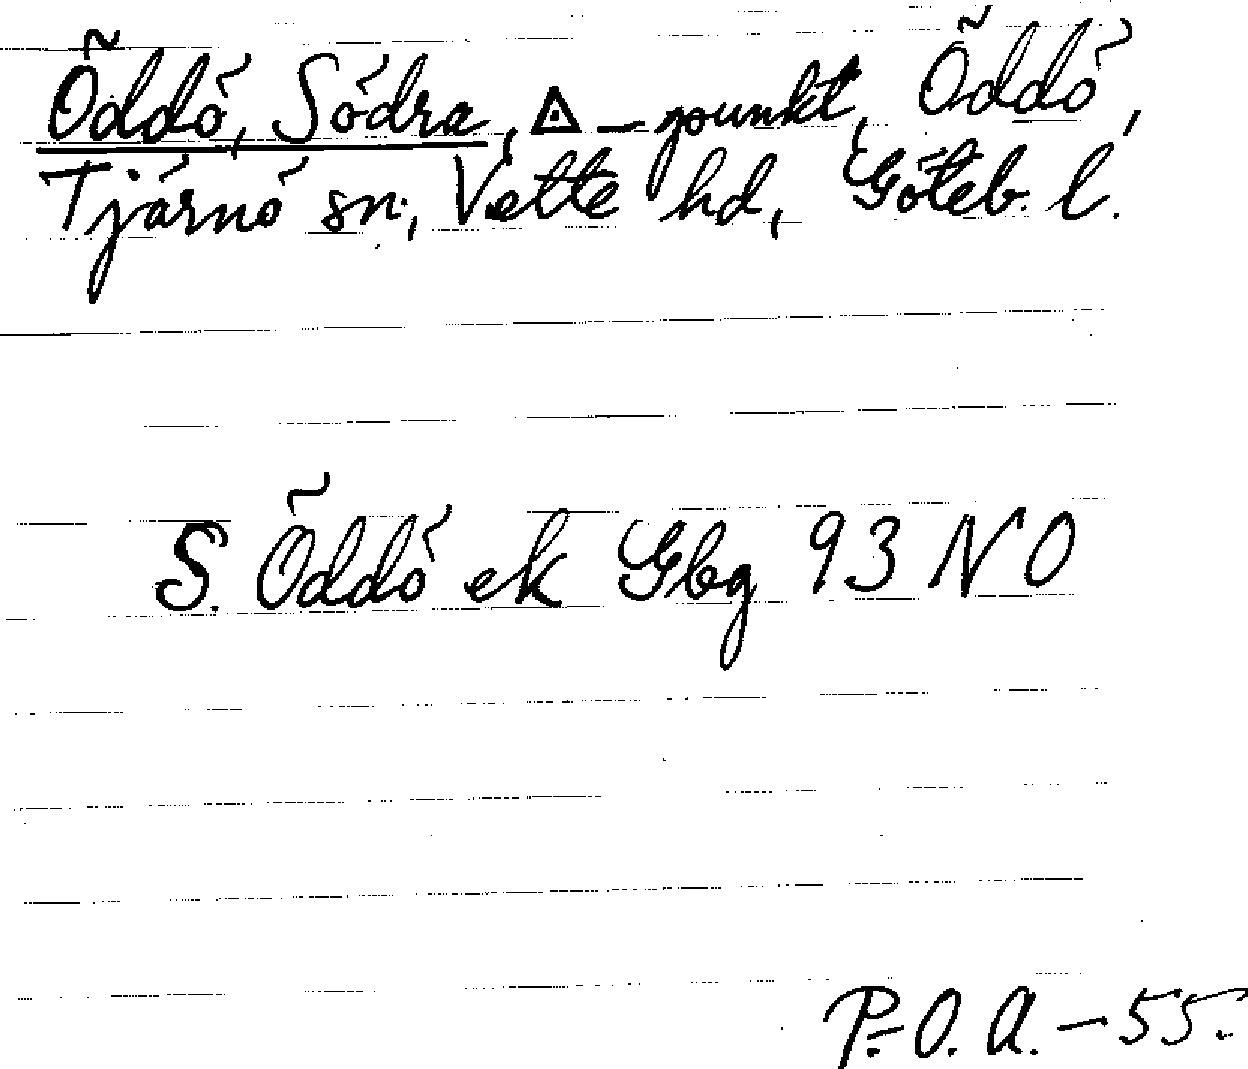 Öddö, Södra, ⟁ - punkt, Öddö,
Tjärnö sn, Vette hd, Göteb. l.
S. Öddö ek Gbg 93 NO
P. O. A. - 55.